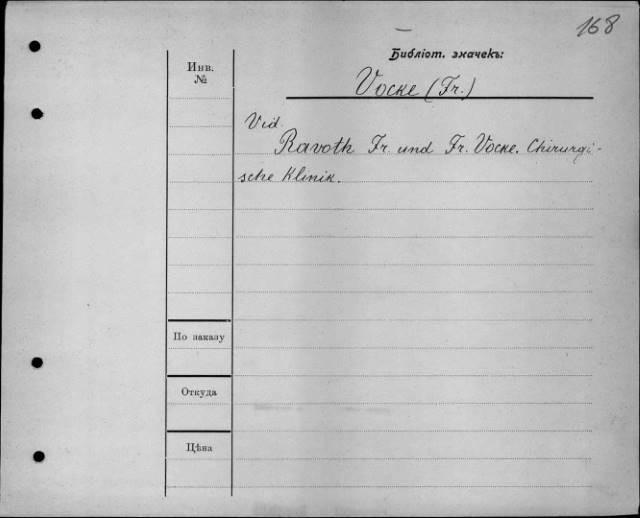 168
Библіот. значекъ:
Инв.
№
Vocke (Fr.)
Vid.
Ravoth Fr. und Fr. Vocke. Chirurgi-
sche Klinik.
По заказу
Откуда
Цѣна